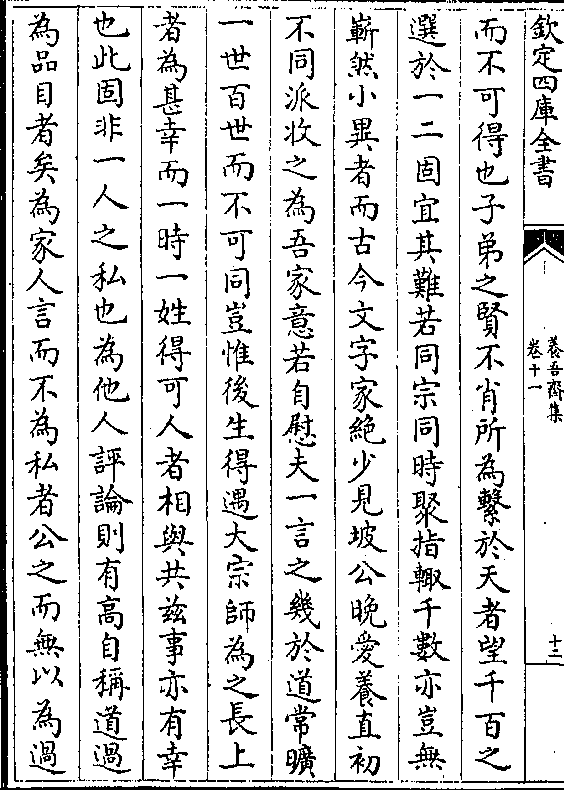 欽定四庫全書
養吾齋集
卷十一
十二
而不可得也子弟之賢不肖所為繫於天者望千百之
選於一二固宜其難若同宗同時聚指輙千數亦豈無
嶄然小異者而古今文字家絶少見坡公晚愛養直初
不同派收之為吾家意若自慰夫一言之幾於道常曠
一世百世而不可同豈惟後生得遇大宗師為之長上
者為甚幸而一時一姓得可人者相與共兹事亦有幸
也此固非一人之私也為他人評論則有高自稱道過
為品目者矣為家人言而不為私者公之而無以為過